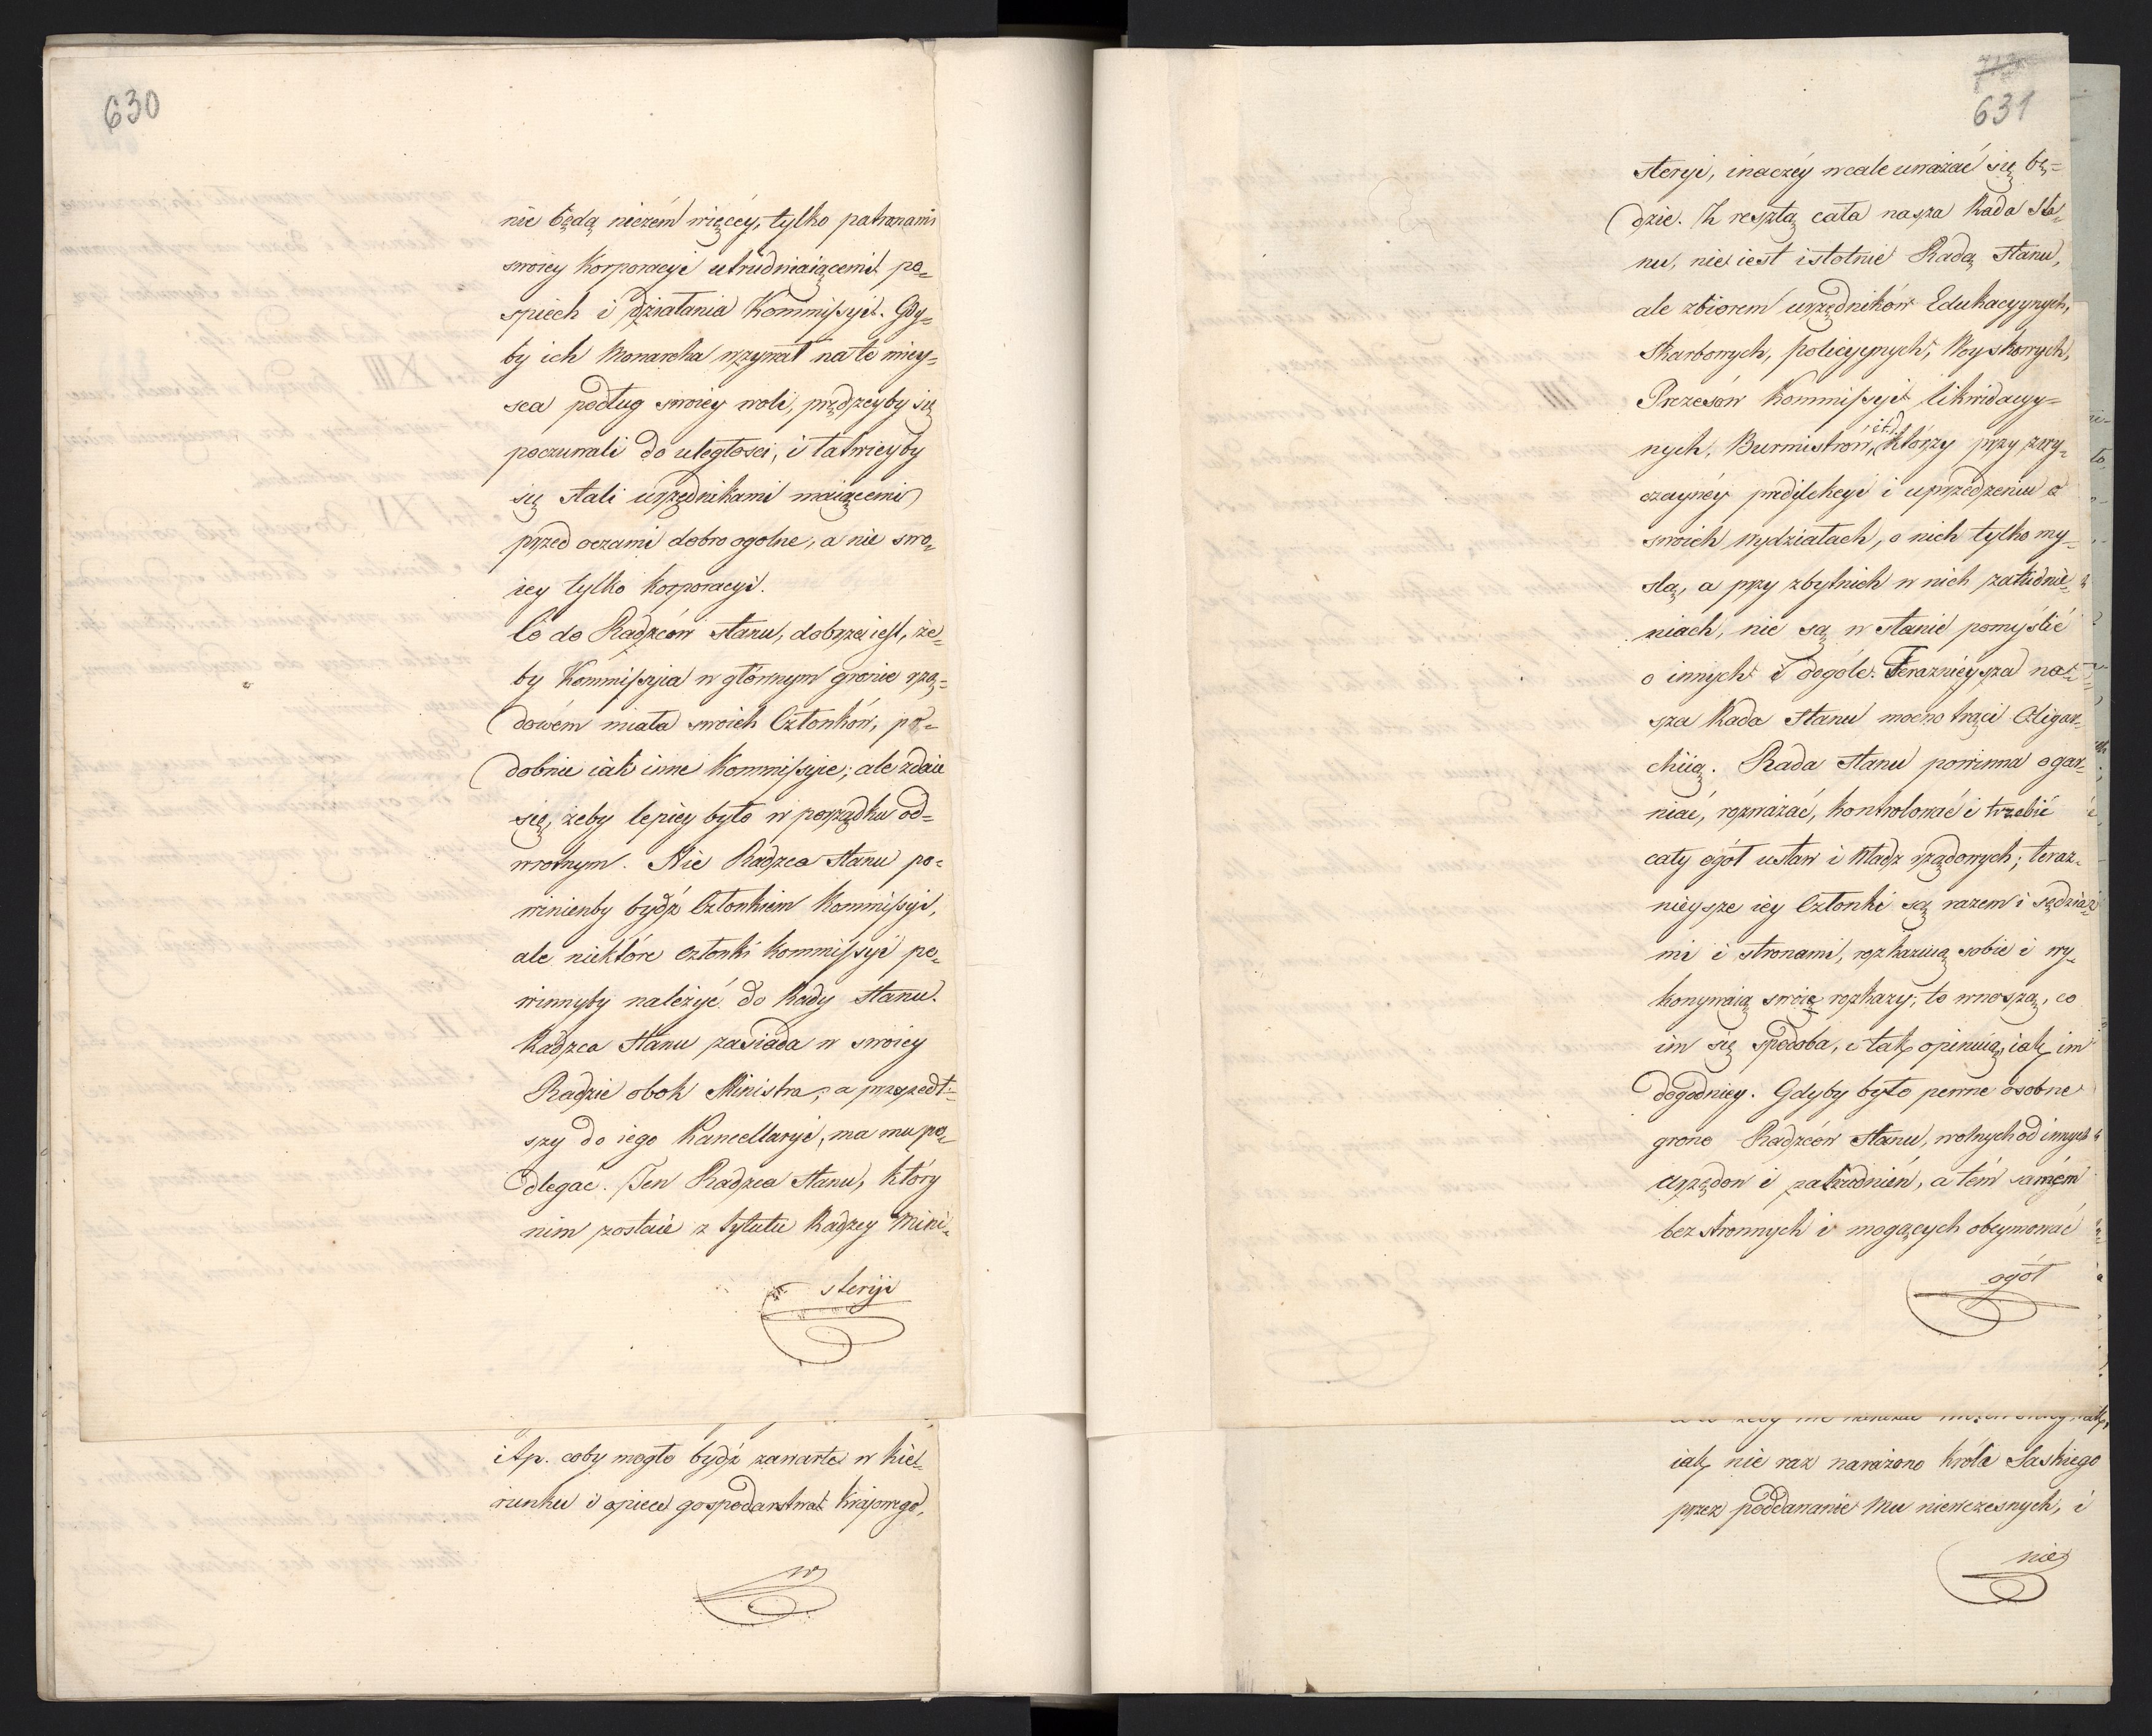 630
nie będą niczém więcéy, tylko patronami
swoiey Korporacyi utrudniaiącemi po=
spiech i działania Kommissyi. Gdy=
by ich Monarcha wzywał na te miey=
sca podług swoiey woli, prędzeyby się
poczuwali do uległosci, i łatwieyby
się stali urzędnikami maiącemi
przed oczami dobro ogolne, a nie swo=
iey tylko Korporacyi.
Co do Radzców Stanu, dobrze iest, że=
by Kommissyia w głównym gronie rzą=
dowém miała swoich Członków, po=
dobnie iak inne Kommissyie; ale zdaie
się, żeby lepiey było w porządku od=
wrotnym. Nie Radzca Stanu po=
winienby bydź Członkiem Kommissyi,
ale niektóre członki Kommissyi po=
winnyby należyć do Rady Stanu.
Radzca Stanu zasiada w swoiey
Radzie obok Ministra, a przyszedł=
szy do iego Kancellaryi, ma mu po=
dlegać. Ten Radzca Stanu, który
nim zostaie z tytułu Radzcy Mini=
steryi
i t p. coby mogło bydź zawarte w kie=
runku i opiece gospodarstwa Krajowego,
w
631
steryi, inaczéy wcale uważać się bę=
dzie. Z resztą cała nasza Rada Sta=
nu, nie iest istotnie Radą Stanu,
ale zbiorem urzędników Edukacyynych,
Skarbowych, policyynych, Woyskowych,
Prezesów Kommissyi likwidacyy=
nych, Burmistrów, i t. d. którzy przy zwy=
czaynéy predylekcyi i uprzedzeniu o
swoich wydziałach, o nich tylko my=
slą, a przy zbytnich w nich zatrudnie=
niach, nie są w stanie pomyślić
o innych i ogóle. Teraznieysza na=
sza Rada Stanu mocno trąci Oligar=
chiią. Rada Stanu powinna ogar=
niać, rozważać, kontrolować i trzebić
cały ogół ustaw i Władz rządowych; teraz=
nieysze iey Członki są razem i sędzia=
mi i stronami, rozkazuią sobie i wy=
konywaią swoie rozkazy; to wnoszą, co
im się spodoba, i tak opiniuią, iak im
dogodniey. Gdyby było pewne osobne
grono Radzców Stanu, wolnych od innych
Urzędow i zatrudnień, a tém samém
bezstronnych i mogących obeymować
ogół
iak nie raz narażono Króla Saskiego
przez poddawanie Mu niewczesnych, i
nie